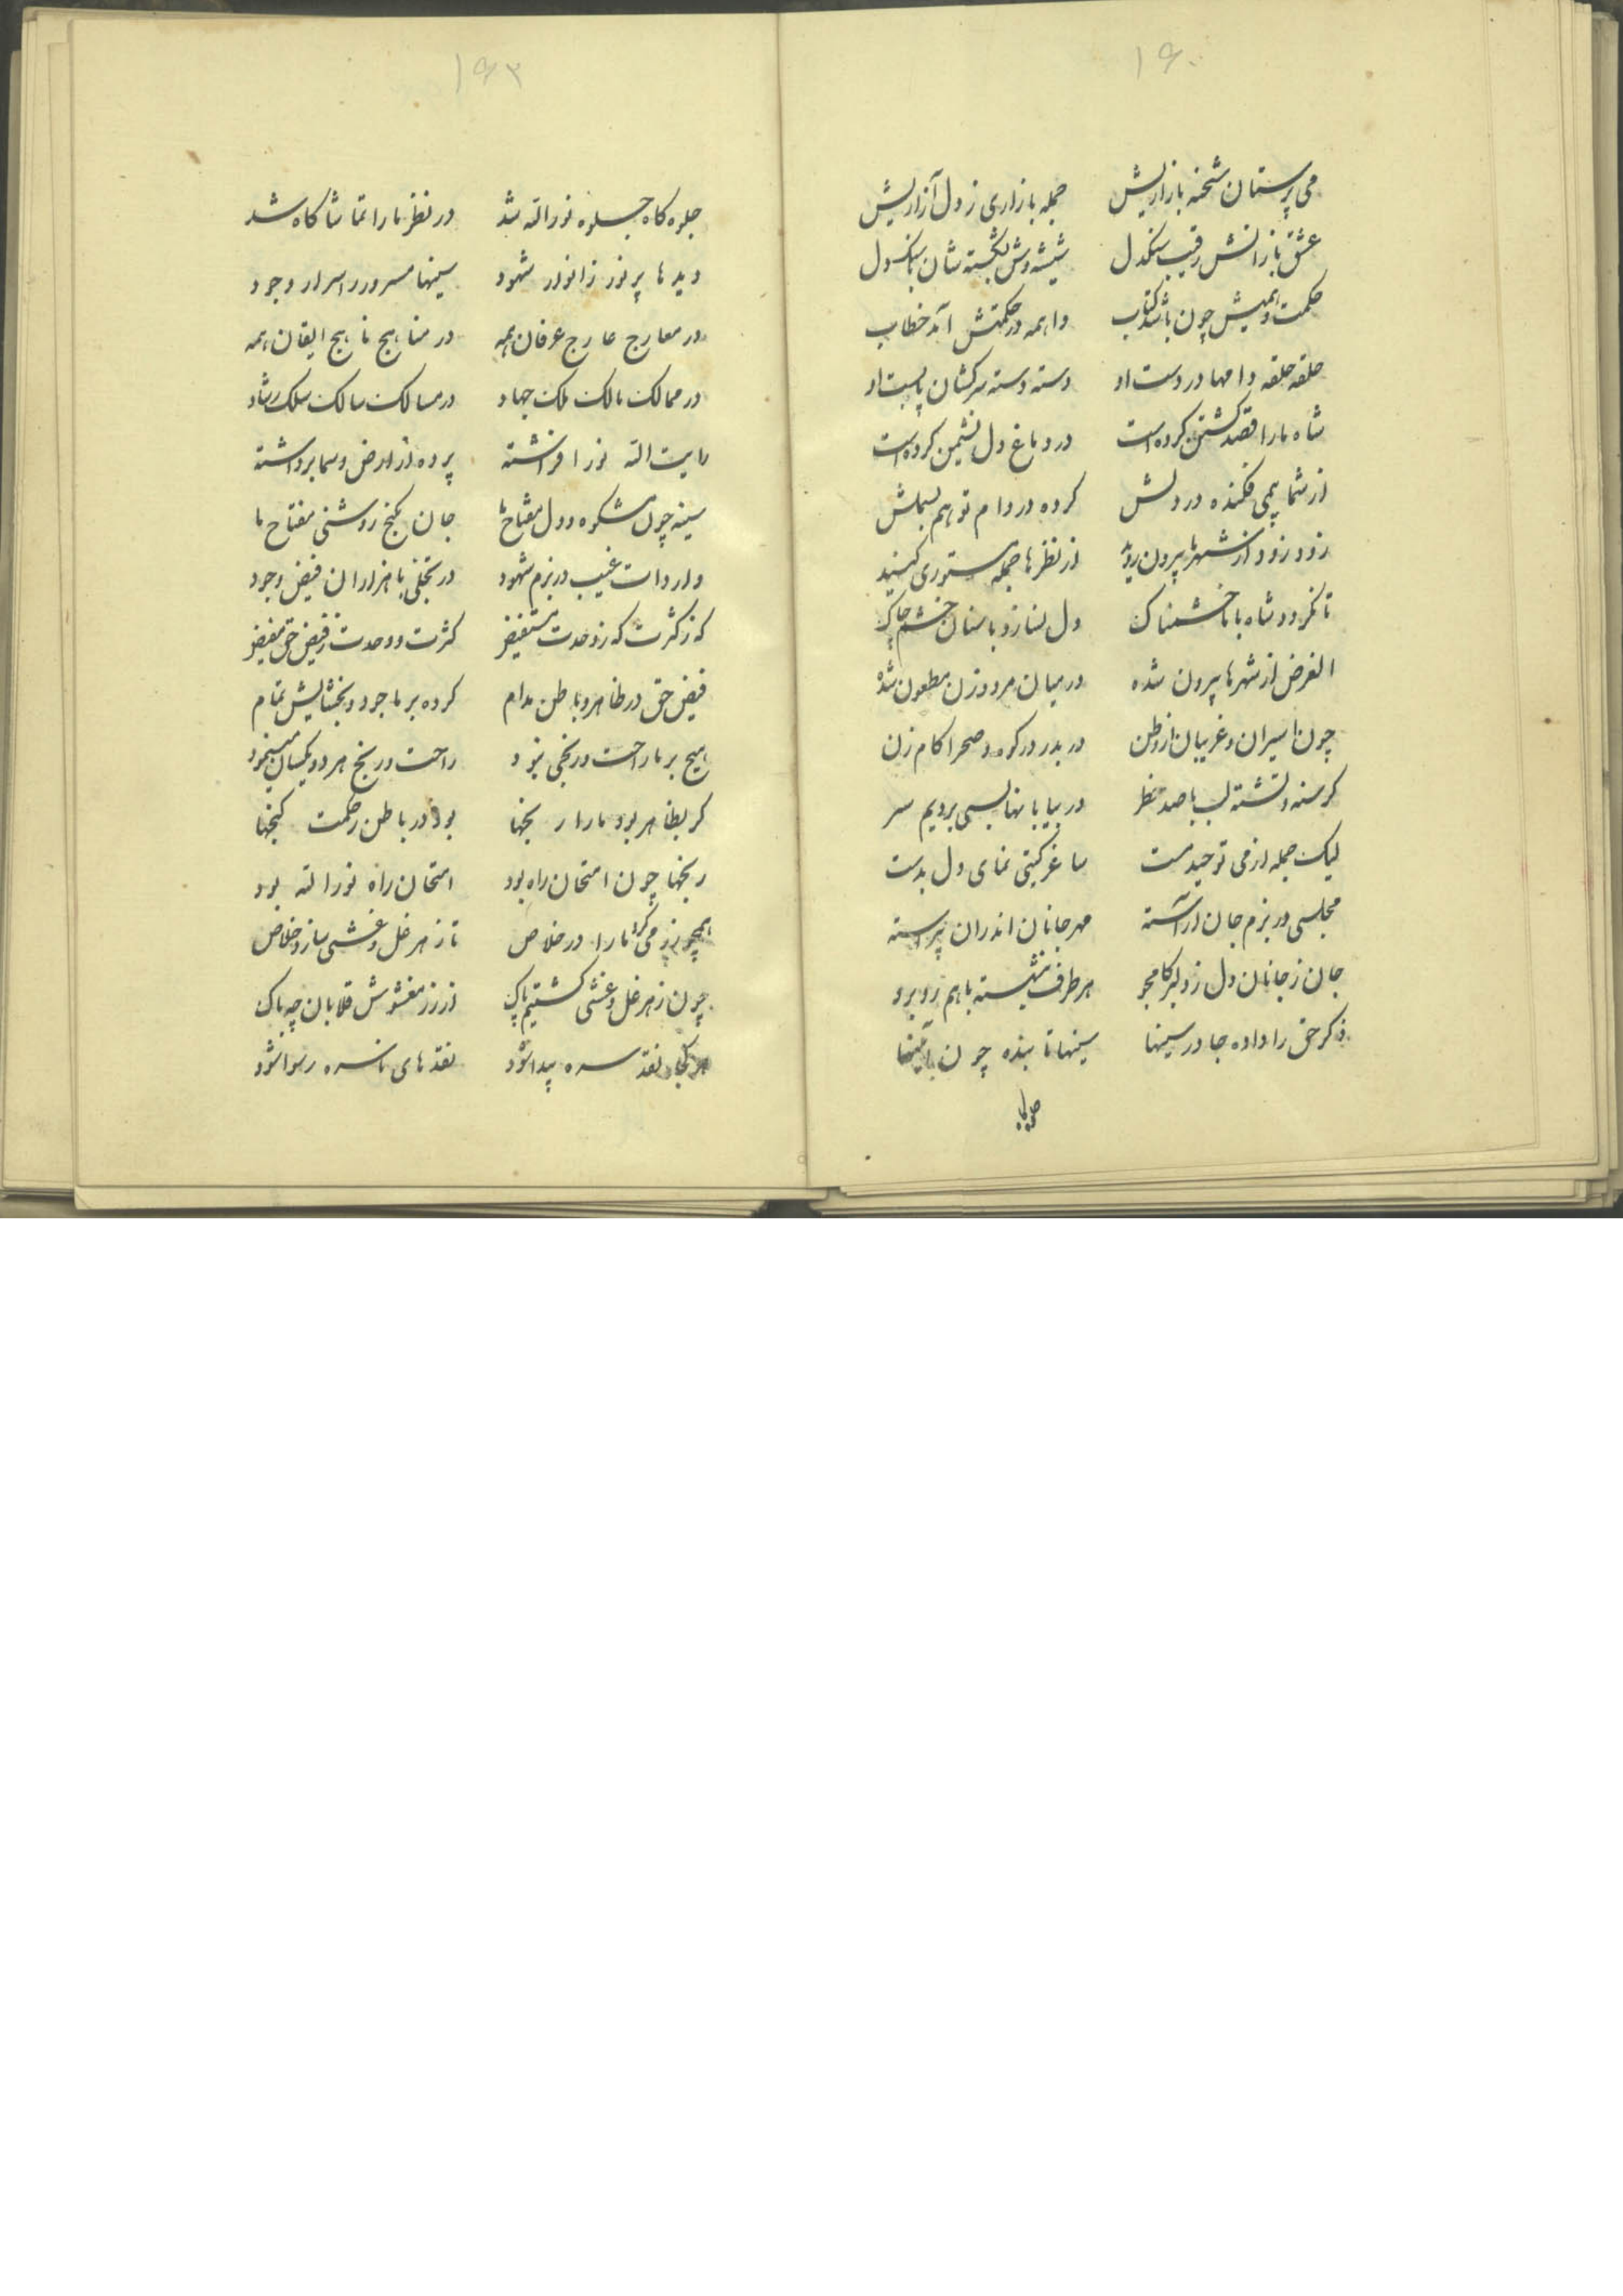 ۱۶۰
می پرستان شحنه بازاریش جمله بازاری ز دل آزاریش
عشق بازانش رقیب سنکدل شیشه وش بشکسته شان با سنک دل
حکمت وهمیش چون باشد کتاب واهمه در حکمتش آمد خطاب
حلقه حلقه دامها در دست او دسته دسته سرکشان پابست او
شاه ما را قصد کشتن کرده است در دماغ دل نشیمن کرده است
از شما بیمی فکنده در دلش کرده در دام توهم بسملش
زود زود از شهرها بیرون روید از نظرها جمله مستوری کنید
تا نکردد شاه با ما خشمناک دل نسازد با سنان خشم چاک
الغرض از شهرها بیرون شده در میان مرد و زن مطعون شده
چون اسیران و غریبان از وطن در بدر در کوه و صحرا کام زن
کرسنه و تشنه لب با صد خطر در بیابانها بسی بردیم سر
لیک جمله از می توحید مست ساغر کیتی نمای دل بدست
مجلسی در بزم جان آراسته مهر جانان اندران پیراسته
جان ز جانان دل ز دلبر کامجو هر طرف بنشسته با هم روبرو
ذکر حق را داده جا در سینها سینها تابنده چون آئینها
۱۶۳
جلوه کاه جلوه نور اله شد در نظر ما را تماشا کاه شد
دیدها پر نور ز انوار شهود سینها مسرور ز اسرار وجود
در معارج عارج عرفان همه در مناهج ناهج ایقان همه
در ممالک مالک ملک جهاد در مسالک سالک سلک رشاد
رایت اله نور افراشته پرده از ارض و سما برداشته
سینه چون مشکوه و دل مصباح ما جان کنج روشنی مفتاح ما
واردات غیب در بزم شهود در تجلی با هزاران فیض وجود
که ز کثرت که ز وحدت مستفیض کثرت و وحدت ز فیض حق مفیض
فیض حق در ظاهر و باطن مدام کرده بر ما جود و بخشایش تمام
هیچ بر ما راحت و رنجی نبود راحت و رنج هر دو یکسان مینمود
کر بظاهر بود ما را رنجها بود در باطن ز حکمت کنجها
رنجها چون امتحان راه بود امتحان راه نور اله بود
همچو زر می کرد ما را در خلاص تا ز هر غل و غشی سازد خلاص
چون ز هر غل و غشی کشتیم پاک از زر مغشوش قلابان چه باک
هر کجا نقد سره پیدا شود نقدهای ناسره رسوا شود